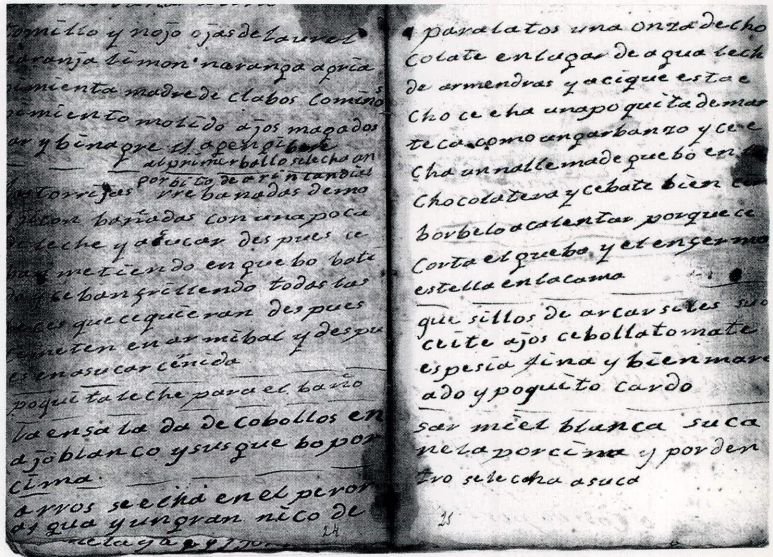 tomillo y nojo ojas de laurel
naranja limon naranga agria
pimienta madre de clabos comino
pimiento molido ajos magados
ar y binagre
al primer ballo se lecha un
por bito de arin tandied
las torrijas rre banadas de mo
bañadas con una poca
leche y asucar des pues ce
ban metiendo en guebo bati
do y se ban frillendo todas las
beces que cequieran des pues
cemeten en armibal y despu
es en asucar cénida
poquita leche para el baño
la ensa la da de cobollos en
ajo blanco y sus gue bo por
cima.
arros se echa en el peror
as gua y un gran nico de
24
para latos una onza de cho
colate en lugar de agua lech
de armendras y acique esta e
cho ce cha una poquita de man
teca como un garbanzo y ce e
cha un nallema de guebo en
chocolatera y cebate bien
borbelo a calentar porque ce
corta el guebo y el enfermo
estella en la cama
que sillos de arcarsiles suo
ceite ajos cebolla tomate
espesia fina y bien mare
ado y poquito cardo
sar miel blanca suca
nela por cima y por den
tro se lecha a suca
25